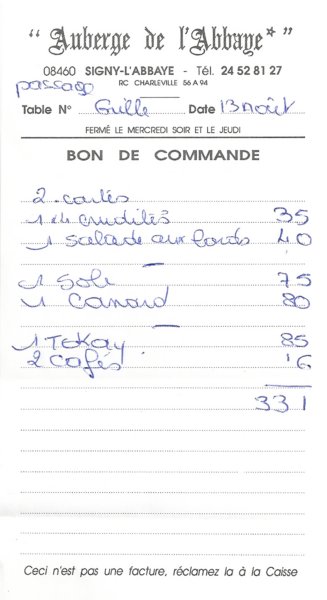 “ Auberge de l'Abbaye*”
08460 SIGNY-L'ABBAYE - Tél. 24 52 81 27
RC CHARLEVILLE 56 A 94
passage
Table N° Grille Date 13 Août
FERMÉ LE MERCREDI SOIR ET LE JEUDI
BON DE COMMANDE
2 cartes
1 crudités 35
1 salade aux lards 40
1 Sole 75
1 canard 80
1 Tokay 85
2 cafés 16
331
Ceci n'est pas une facture, réclamez la à la Caisse